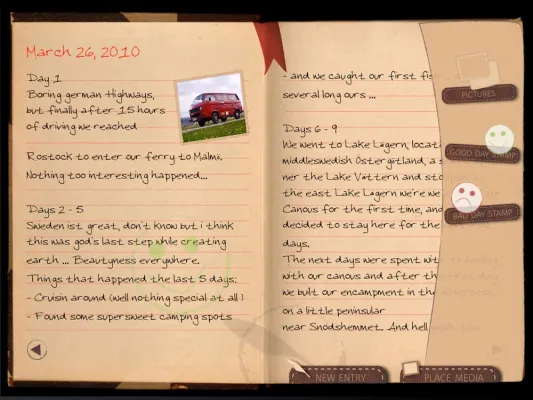 March 26, 2010
Day 1
Boring german Highways,
but finally after 15 hours
of driving we reached
Rostock to enter our ferry to Malmö.
Nothing too interesting happened...
Days 2 - 5
Sweden ist great, don't know but i think
this was god's last step while creating
earth ... Beautyness everywhere.
Things that happened the last 5 days:
- Cruisin around (well nothing special at all)
- Found some supersweet camping spots
- and we caught our first
several long ours ...
Days 6 - 9
We went to Lake Lägern, locat
middleswedish Östergötland, a s
ner the Lake Vättern and
the east Lake Lägern we're we
Canous for the first time, and
decided to stay here for the
days.
The next days were spent with
with our canous and after the first day
we built our encampment in the
on a little peninsular
near Snödshemmet. And hell
PICTURES
GOOD DAY STAMP
BAD DAY STAMP
NEW ENTRY
PLACE MEDIA